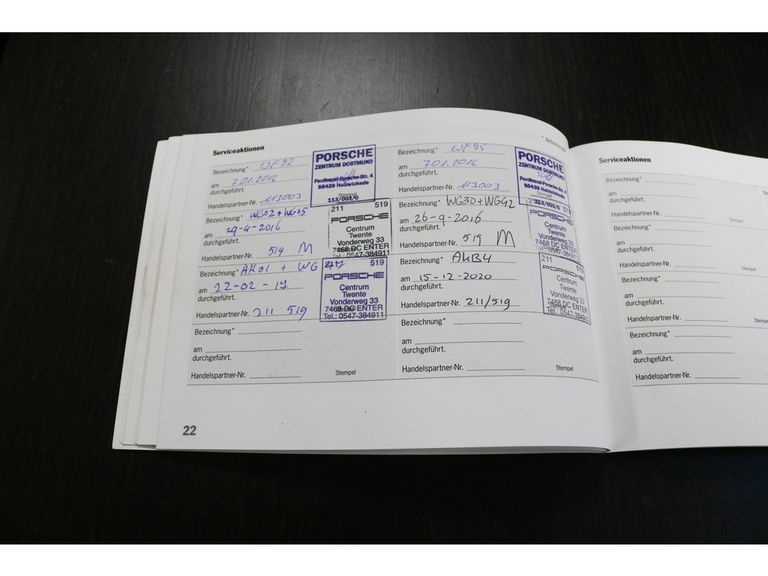 Serviceaktionen
Bezeichnung* WF92
am 7.01.2016
durchgeführt.
Handelspartner-Nr. 113003
PORSCHE
ZENTRUM DORTMUND
Ferdinand-Porsche-Str. 4
58439 Holzwickede
Stempel
113/003/0
Bezeichnung* WG02 + WG05
am 29-4-2016
durchgeführt.
Handelspartner-Nr. 519 M
211 519
PORSCHE
Centrum
Twente
Vonderweg 33
7468 DC ENTER
Tel.: 0547-384911
Bezeichnung* AK01 + WG
am 22-02-17
durchgeführt.
Handelspartner-Nr. 211 519
519
PORSCHE
Centrum
Twente
Vonderweg 33
7468 DC ENTER
Tel.: 0547-384911
Bezeichnung*
am
durchgeführt.
Handelspartner-Nr.
Stempel
Bezeichnung* WF95
am 7.01.2016
durchgeführt.
Handelspartner-Nr. 113003
PORSCHE
ZENTRUM DORTMUND
Ferdinand-Porsche-Str. 4
58439 Holzwickede
113/003/0
Bezeichnung* WG30 + WG42
am 26-9-2016
durchgeführt.
Handelspartner-Nr. 519 M
PORSCHE
Centrum
Twente
Vonderweg 33
7468 DC ENTER
Tel.: 0547-384911
Bezeichnung* AKB4
am 15-12-2020
durchgeführt.
Handelspartner-Nr. 211/519
211
PORSCHE
Centrum
Twente
Vonderweg 33
7468 DC ENTER
Tel.: 0547-384911
Bezeichnung*
am
durchgeführt.
Handelspartner-Nr.
Stempel
22
Serviceaktionen
Bezeichnung*
am
durchgeführt.
Handelspartner-Nr.
Stempel
Bezeichnung*
am
durchgeführt.
Handelspartner-Nr.
Stempel
Bezeichnung*
am
durchgeführt.
Handelspartner-Nr.
Stempel
Bezeichnung*
am
durchgeführt.
Handelspartner-Nr.
Stempel